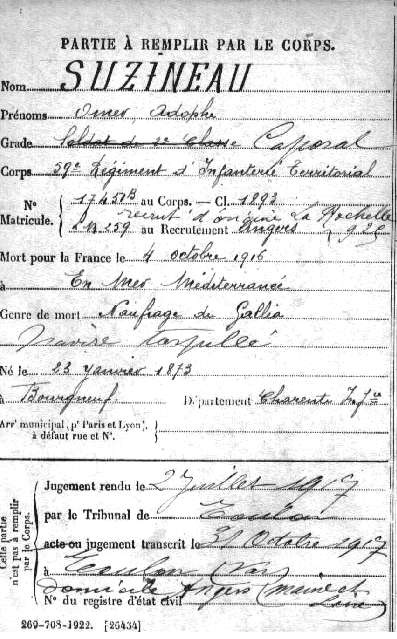 PARTIE À REMPLIR PAR LE CORPS.
Nom SUZINEAU
Prénoms Omer Adophe
Grade Soldat de 2e Classe Caporal
Corps 59e Régiment d'Infanterie Territorial
N° Matricule. { 17451B au Corps. — Cl. 1893
recrut d'origine La Rochelle
au Recrutement Angers
Mort pour la France le 4 octobre 1916
à En Mer Méditerranée
Genre de mort Naufrage de Gallia
navire torpillé
Né le 23 Janvier 1873
à Bourgneuf Département Charente Infre
Arrt municipal (pr Paris et Lyon), à défaut rue et N°.
Cette partie n'est pas à remplir par le Corps.
Jugement rendu le 2 Juillet 1917
par le Tribunal de Toulon
acte ou jugement transcrit le 31 Octobre 1917
à Toulon (Var)
domicile Angers Maine et Loire
N° du registre d'état civil
269-708-1922. [26434]